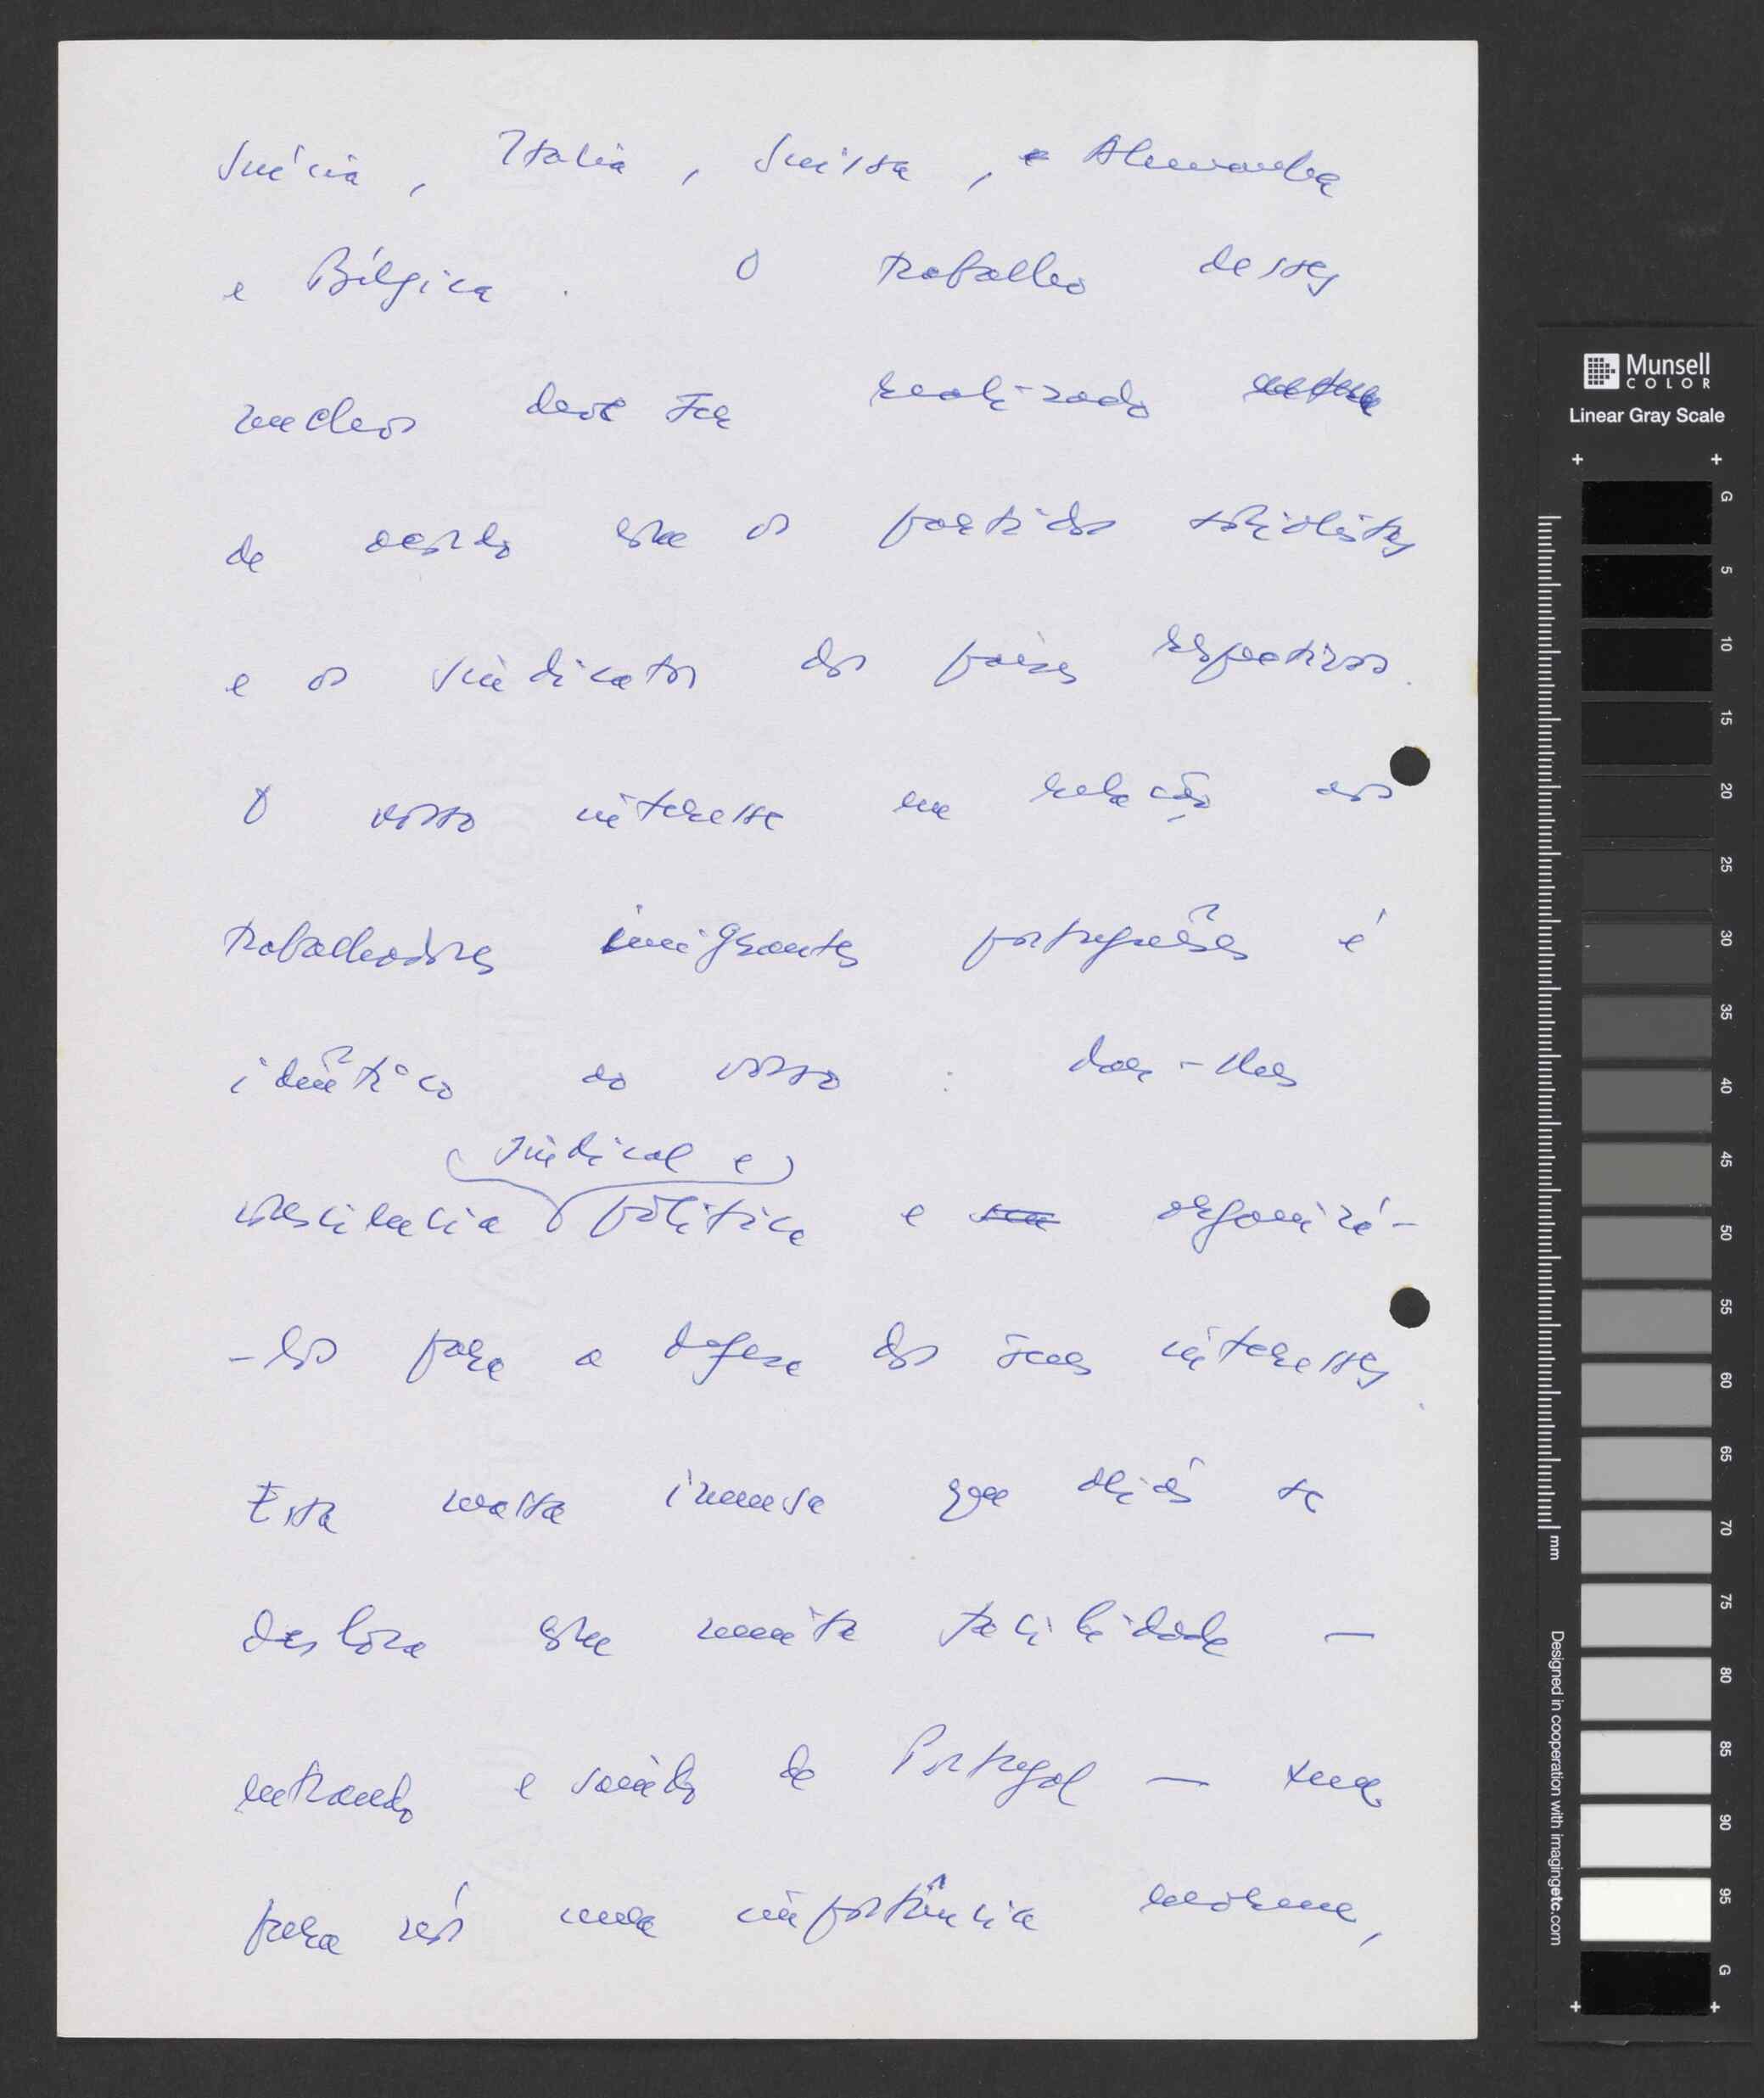 Suécia, Italia, Suissa, e Alemanha
e Bélgica. O trabalho desses
nucleos deve ser realizado
de acordo com os partidos socialistas
e os sindicatos dos paises respectivos.
O nosso interesse em relação aos
trabalhadores imigrantes portuguêses é
idêntico ao vosso: dar-lhes
sindical e
consciencia política e organizá-
-los para a defesa dos seus interesses.
Esta massa imensa que aliás se
desloca com muita facilidade —
entrando e saindo de Portugal — tem
para nós uma importância enorme,
Munsell
COLOR
Linear Gray Scale
G
5
10
15
20
25
30
35
40
45
50
55
60
65
70
75
80
85
90
95
G
mm
Designed in cooperation with imagingetc.com